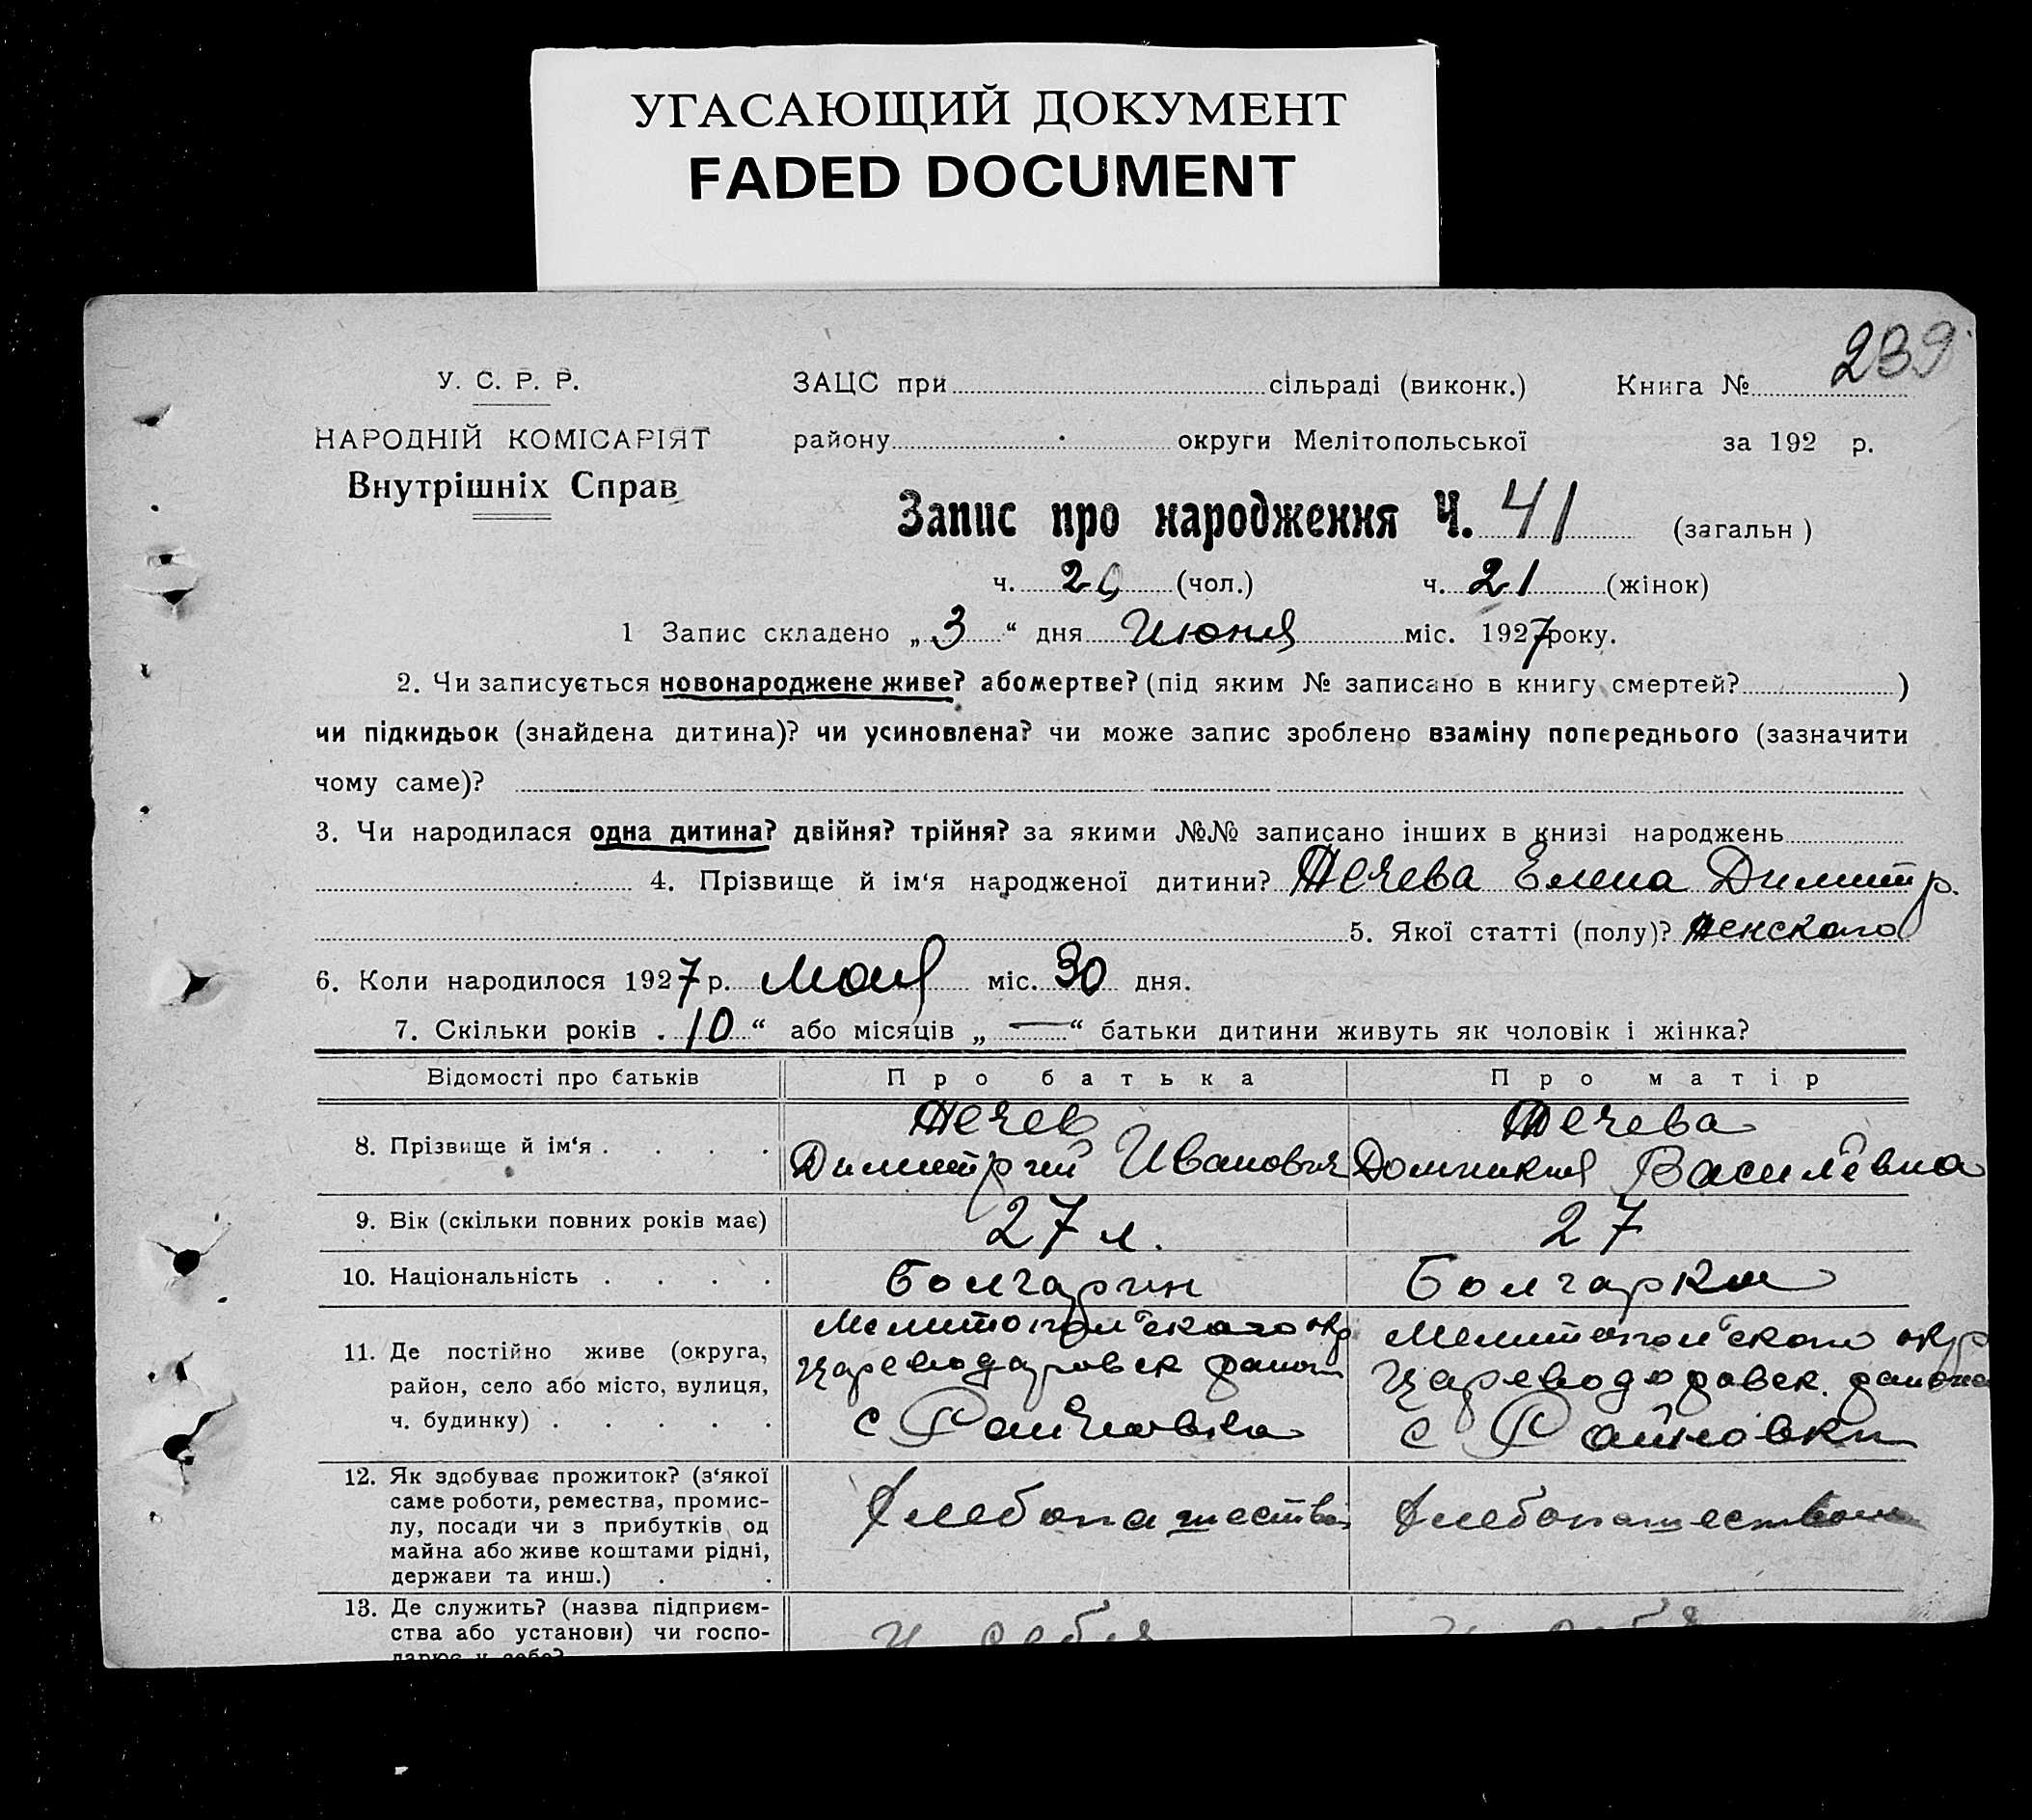 УГАСАЮЩИЙ ДОКУМЕНТ
FADED DOCUMENT
239
У. С. Р. Р.
НАРОДНІЙ КОМІСАРІЯТ
Внутрішніх Справ
ЗАЦС при сільраді (виконк.) Книга №
району округи Мелітопольської за 192 р.
Запис про народження Ч. 41 (загальн)
ч. 20 (чол.) ч. 21 (жінок)
1 Запис складено „3“ дня Июня міс. 1927 року.
2. Чи записується новонароджене живе? або мертве? (під яким № записано в книгу смертей? )
чи підкидьок (знайдена дитина)? чи усиновлена? чи може запис зроблено взаміну попереднього (зазначити
чому саме)?
3. Чи народилася одна дитина? двійня? трійня? за якими №№ записано інших в книзі народжень
4. Прізвище й ім‘я народженої дитини? Течева Елена Димитр.
5. Якої статті (полу)? женского
6. Коли народилося 1927 р. Мая міс. 30 дня.
7. Скільки років „10“ або місяців „—“ батьки дитини живуть як чоловік і жінка?
Відомості про батьків Про батька Про матір
8. Прізвище й ім‘я . . . . Течев Димитрий Иванович Течева Домникия Василевна
9. Вік (скільки повних років має) 27 л. 27
10. Національність . . . . Болгарин Болгарка
11. Де постійно живе (округа,
район, село або місто, вулиця,
ч. будинку) . . . . .
Мелитопольского окр
Цареводаровск район
с Райновка
Мелитопольского окр
Цареводаровск. района
с Райновки
12. Як здобуває прожиток? (з‘якої
саме роботи, ремества, промис-
лу, посади чи з прибутків од
майна або живе коштами рідні,
держави та инш.) . .
Хлебопашество Хлебопашеством
13. Де служить? (назва підприєм-
ства або установи) чи госпо-
дарює у себе?
У себя У себя